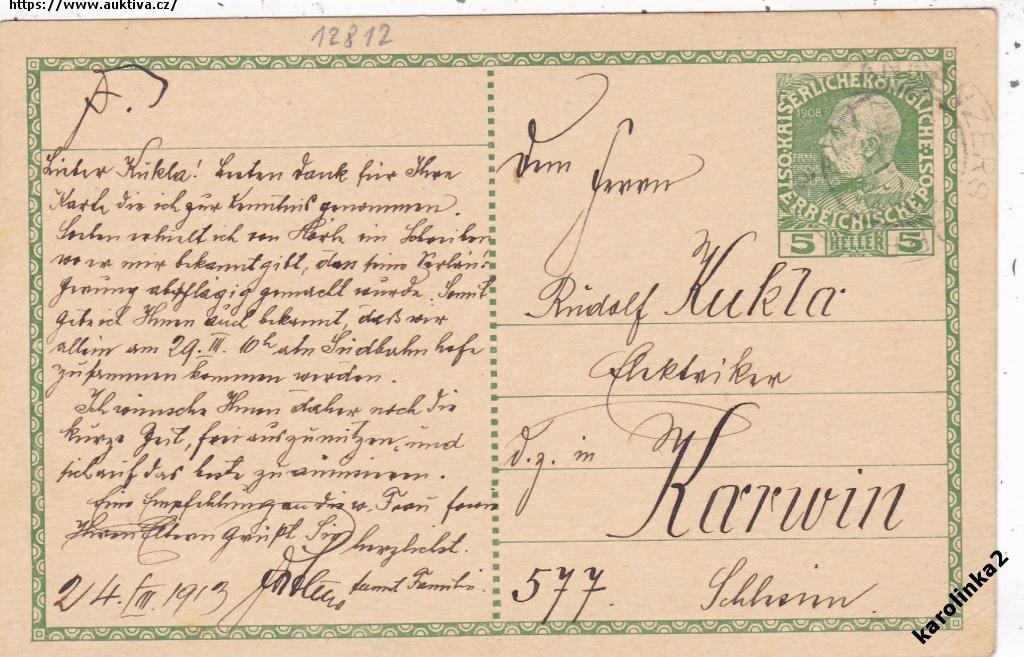 https://www.auktiva.cz/
12812
Lieber Kukla! Besten Dank für Ihre
Karte die ich zur Kenntnis genommen.
Soeben erhielt ich von ein Schreiben
wo er mir bekannt gibt, das seine Verlän-
gerung abschlägig gemacht wurde. Somit
gebe ich Ihnen auch bekannt, daß wir
allein am 29. III. 10h am Südbahnhofe
zusammen kommen werden.
Ich wünsche Ihnen daher noch die
kurze Zeit, frei auszunützen, und
sich auf das beste zu amüsieren.
Eine Empfehlung an die w. Frau sowie
Ihren Eltern Grüßt Sie herzlichst.
samt Familie.
24./III. 1913
KAISERLICHEKÖNIGLICHE
ÖSTERREICHISCHE POST
1908
FRAN
CISCVS
IOSEPHVS
5 HELLER 5
Dem
Herrn
Rudolf Kukla
Elektriker
d. z. in
Karwin
577. Schlesien.
karolinka2